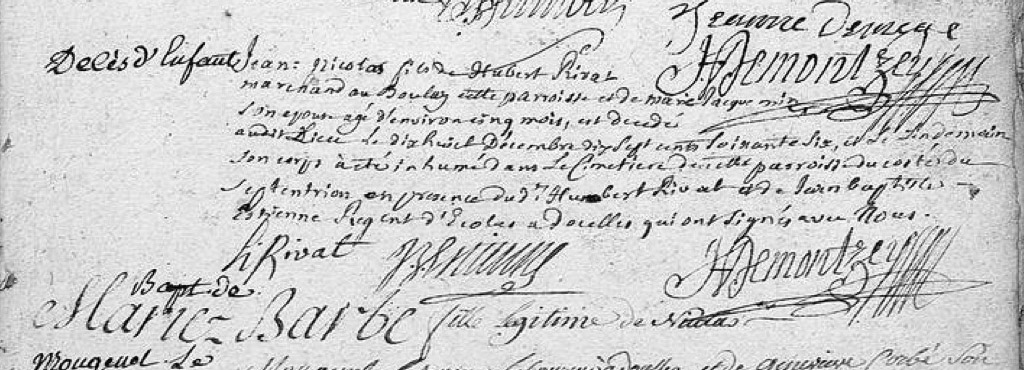 Jeanne
Decès d'Enfant Jean Nicolas fils de Hubert Rivat
marchand au Boulay cette parroisse et de marie Jacquemin
son epouse agé d'environ cinq mois, est decedé
audit Lieu le dixhuict Decembre dix Sept cents Soixante Six, et le Lendemain
son corps à eté inhumé dans le Cimetiere de cette parroisse du costé du
Septentrion en presence du d.t Humbert Rivat et de Jean baptiste
Estienne Regent d'Ecoles a Docelles qui ont signés avec Nous.
h Rivat JB Estienne HDemontzey
Bapt. de
Marie Barbe fille legitime de Nicolas
Mougenel Le
et de genevieve Son